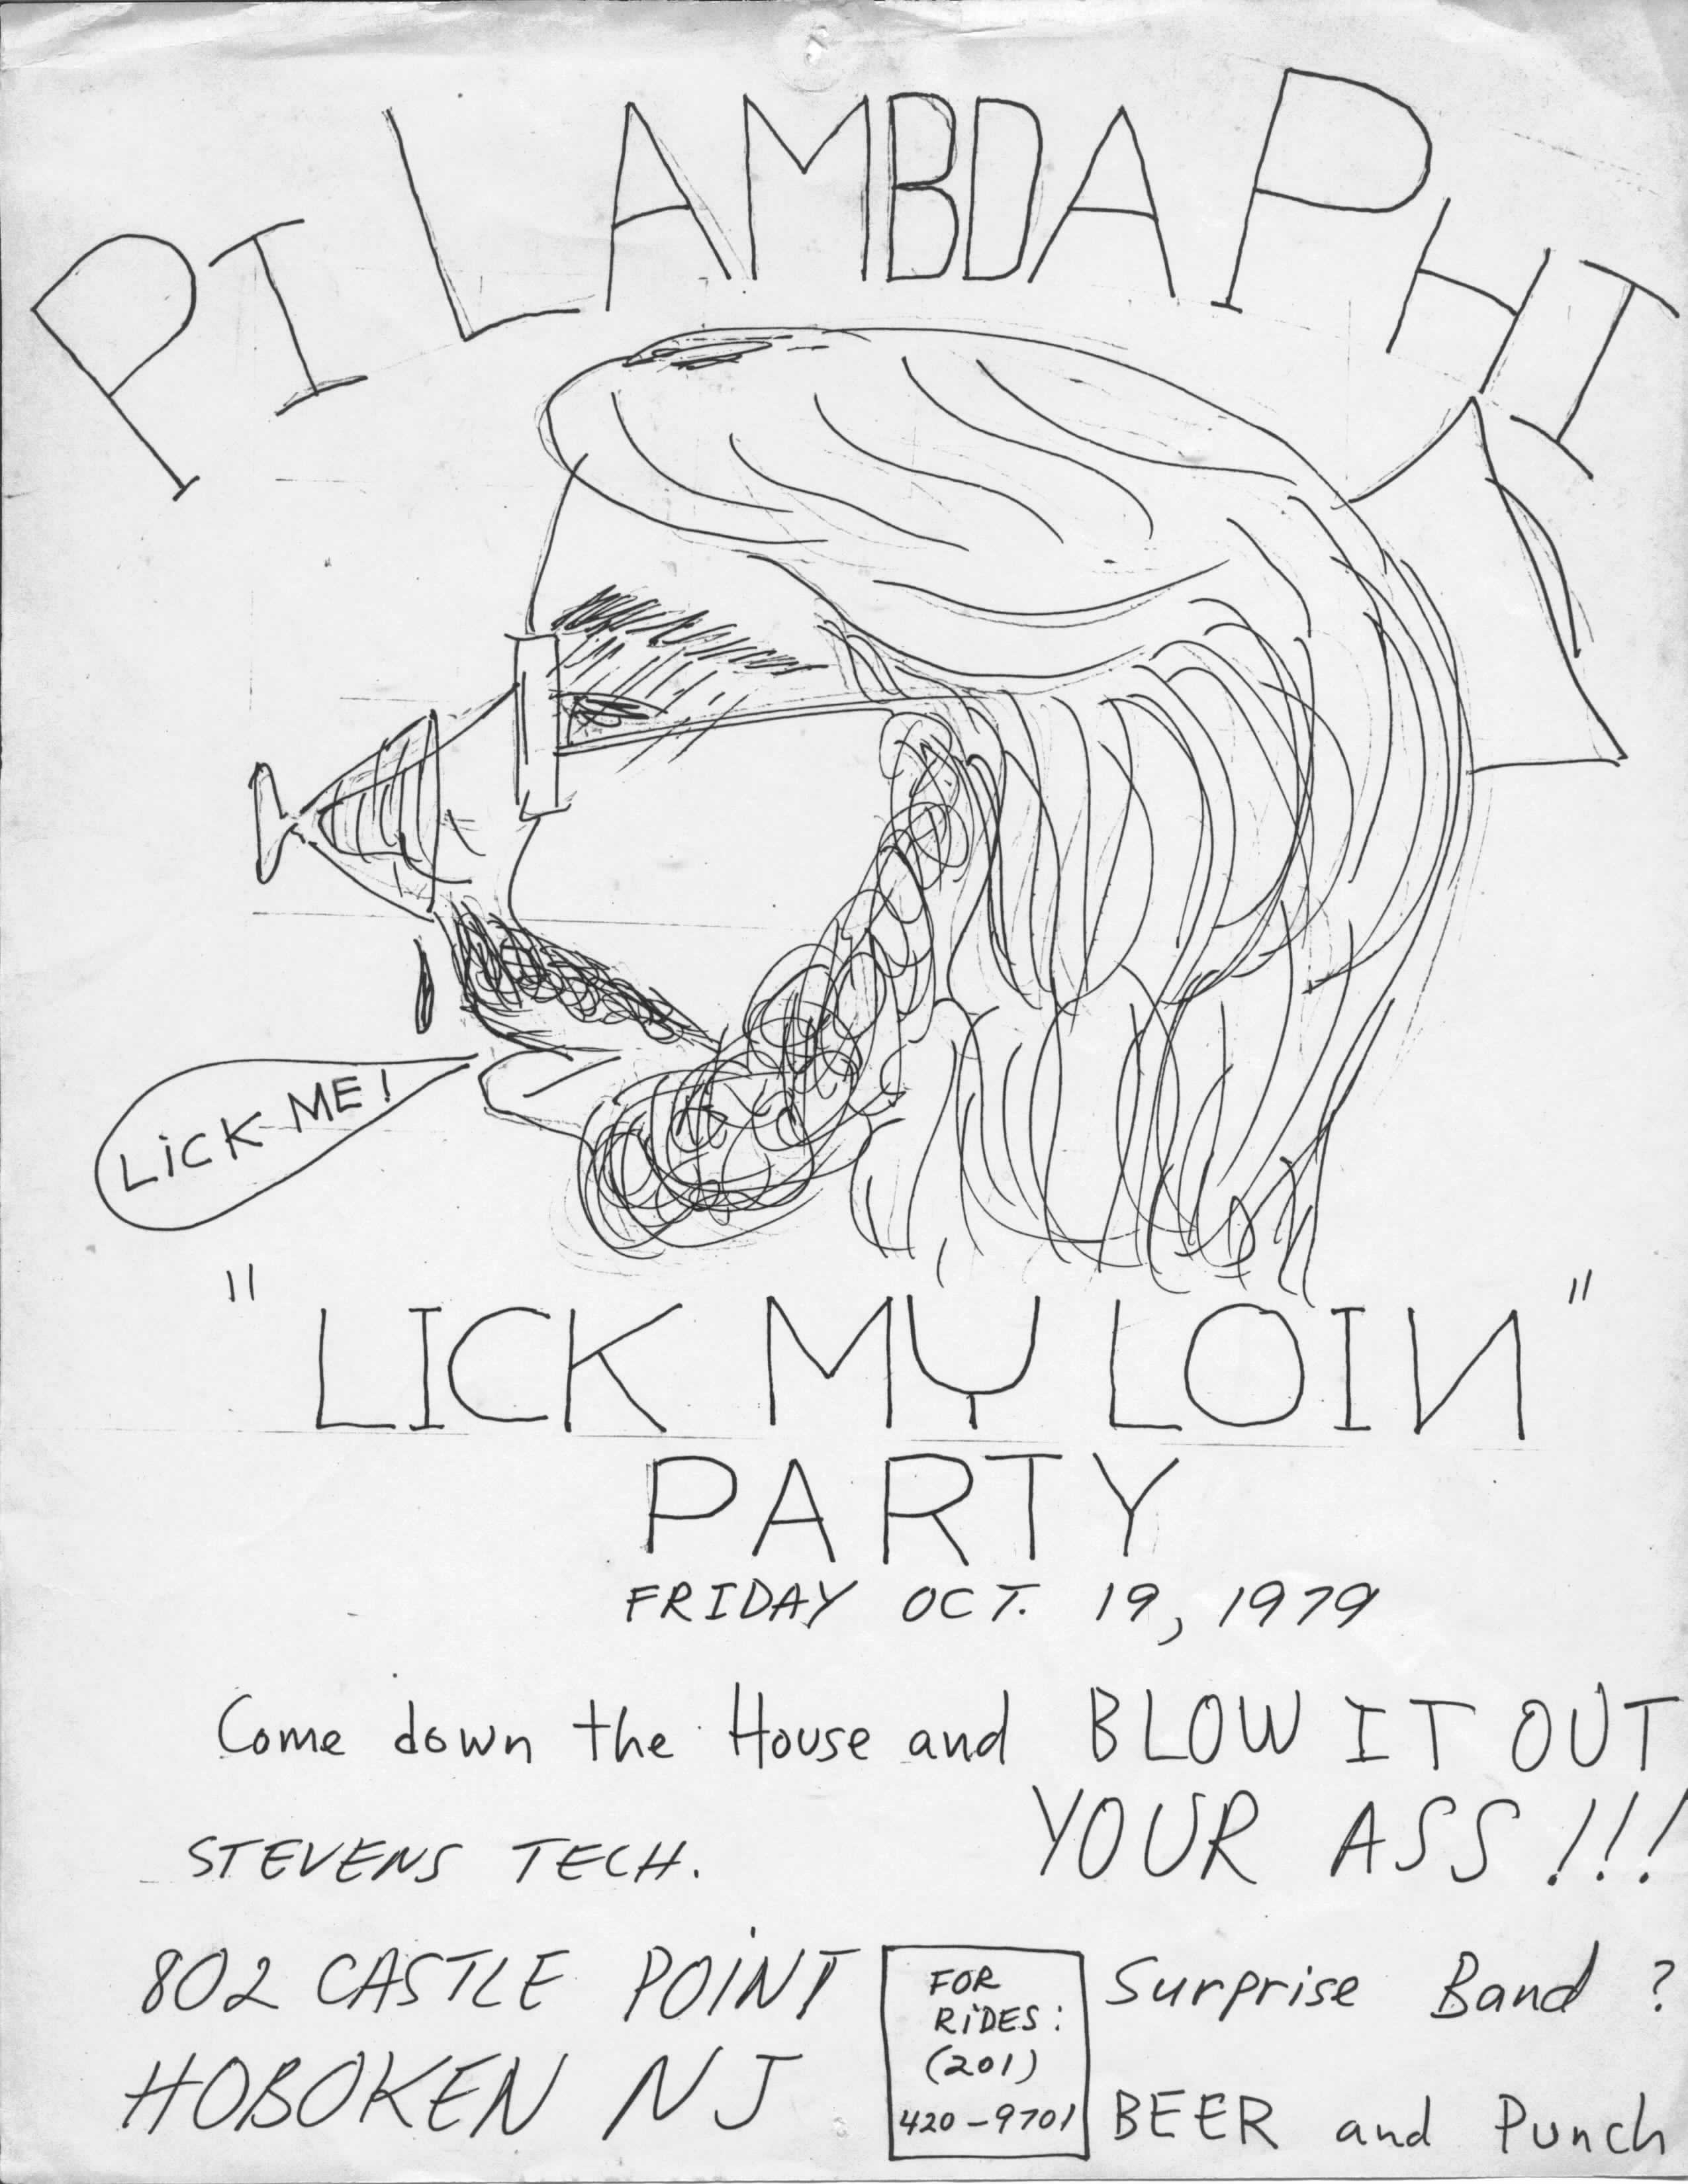 PI LAMBDA PHI
LiCK ME!
"LICK MY LOIN"
PARTY
FRIDAY OCT. 19, 1979
Come down the House and BLOW IT OUT
YOUR ASS!!!
STEVENS TECH.
802 CASTLE POiNT
HOBOKEN NJ
FOR
RiDES:
(201)
420-9701
Surprise Band ?
BEER and Punch